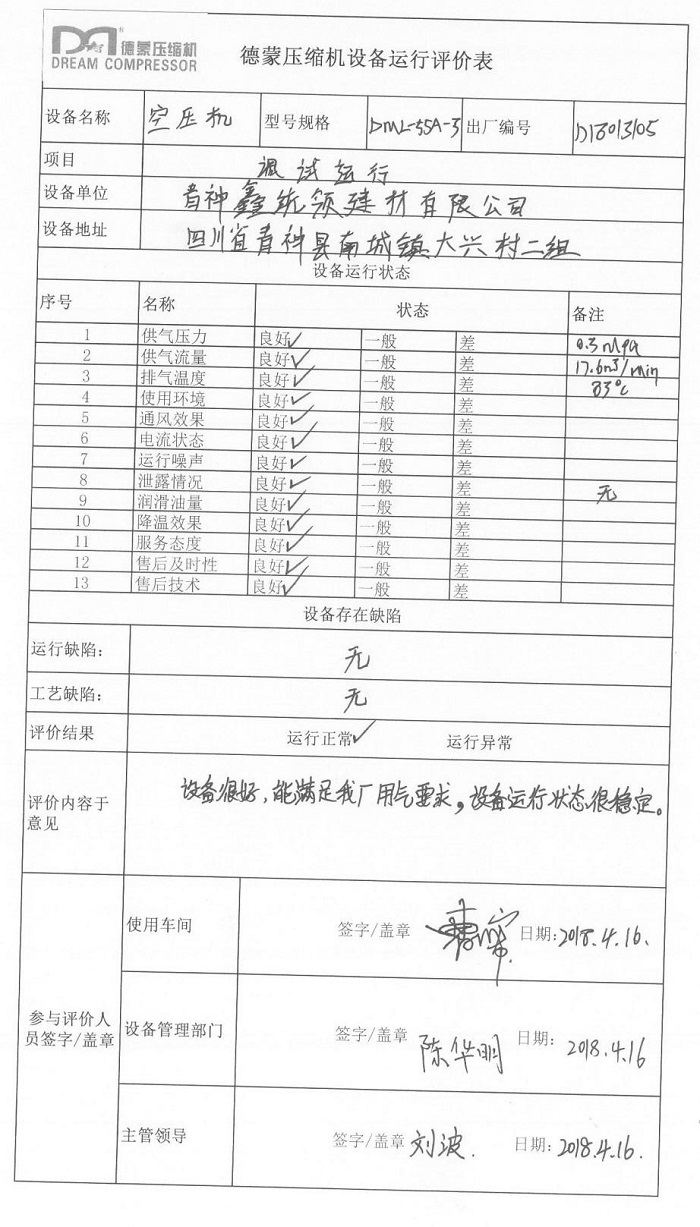 德蒙压缩机
DREAM COMPRESSOR
德蒙压缩机设备运行评价表
设备名称 空压机 型号规格 DML-55A-3 出厂编号 D18013105
项目 调试运行
设备单位 青神鑫统领建材有限公司
设备地址 四川省青神县南城镇大兴村二组
设备运行状态
序号 名称 状态 备注
1 供气压力 良好✓ 一般 差 0.3mpa
2 供气流量 良好✓ 一般 差 17.6m³/min
3 排气温度 良好✓ 一般 差 83°C
4 使用环境 良好✓ 一般 差
5 通风效果 良好✓ 一般 差
6 电流状态 良好✓ 一般 差
7 运行噪声 良好✓ 一般 差
8 泄露情况 良好✓ 一般 差 无
9 润滑油量 良好✓ 一般 差
10 降温效果 良好✓ 一般 差
11 服务态度 良好✓ 一般 差
12 售后及时性 良好✓ 一般 差
13 售后技术 良好✓ 一般 差
设备存在缺陷
运行缺陷： 无
工艺缺陷： 无
评价结果 运行正常✓ 运行异常
评价内容于
意见
设备很好，能满足我厂用气要求，设备运行状态很稳定。
参与评价人
员签字/盖章
使用车间 签字/盖章 日期：2018.4.16.
设备管理部门 签字/盖章 陈华明 日期： 2018.4.16
主管领导 签字/盖章 刘波. 日期：2018.4.16.